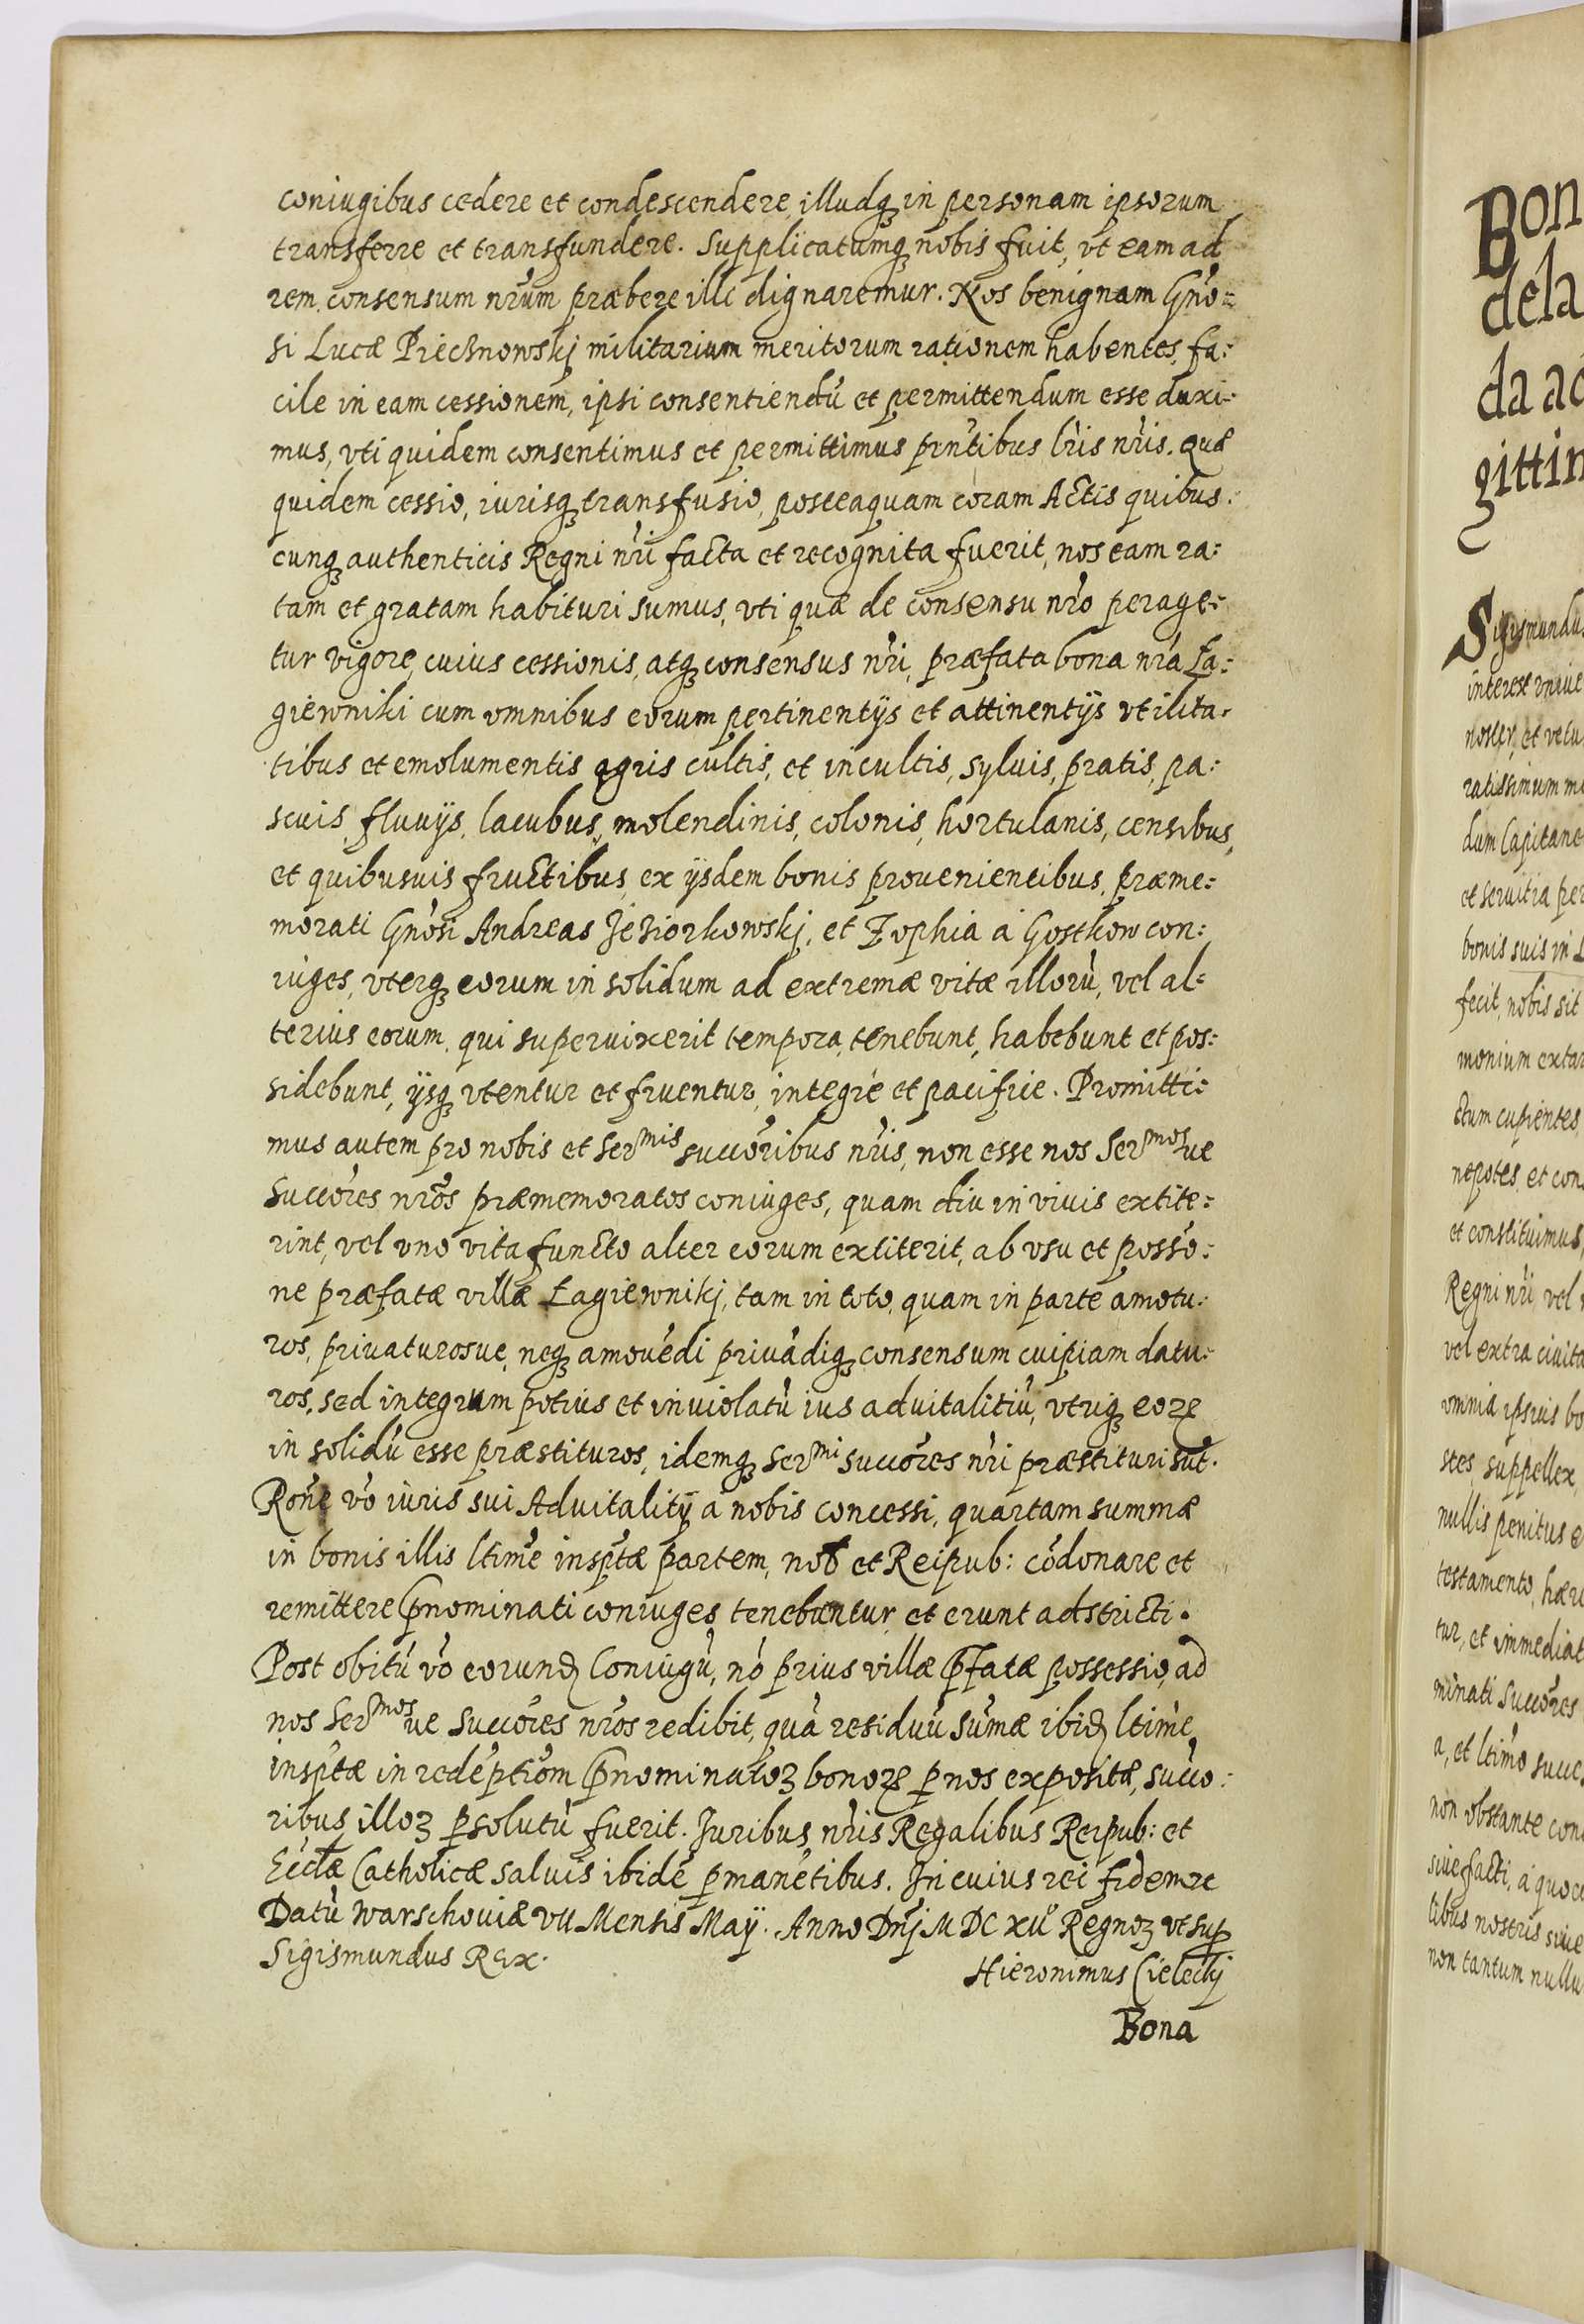 coniugibus cedere et condescendere, illudq́ꝫ in personam ipsorum
transferre et transfundere. Supplicatumqꝫ nobis fuit, vt eam ad
rem consensum nr̃um præbere illi dignaremur. Nos benignam Gño=
si Lucæ Piecznowskj militarium meritorum rationem habentes, fa:
cile in eam cessionem, ipsi consentiendũ et permittendum esse duxi:
mus, vti quidem consentimus et permittimus pñtibus lr̃is nr̃is. Quæ
quidem cessio, iurisqꝫ transfusio, posteaquam coram Actis quibus:
cunqꝫ authenticis Regni nr̃i facta et recognita fuerit, nos eam ra:
tam et gratam habituri sumus, vti quæ de consensu nr̃o perage:
tur vigore, cuius cessionis, atqꝫ consensus nr̃i, præfata bona nr̃a Ła:
giewniki cum omnibus eorum pertinentijs et attinentijs vtilita:
tibus et emolumentis agris cultis, et incultis, syluis, pratis, pa:
scuis, fluuijs, lacubus, molendinis, colonis, hortulanis, censibus,
et quibusuis fructibus, ex ijsdem bonis prouenientibus, præme:
morati Gñosi Andreas Jeziorkowskj, et Zophia á Gostkow con:
iuges, vterqꝫ eorum in solidum ad extremæ vitæ illorũ, vel al:
terius eorum, qui superuixerit tempora, tenebunt, habebunt et pos:
sidebunt, ijsqꝫ vtentur et fruentur, integrè et pacificè. Promitti:
mus autem pro nobis et Ser^mis succõribus nr̃is, non esse nos Ser^mos ue
Succõres nr̃os præmemoratos coniuges, quam diu in viuis extite:
rint, vel vno vita functo alter eorum extiterit, ab vsu et posso̅:
ne præfatæ villæ Łagiewnikj, tam in toto, quam in parte amotu:
ros, priuaturosue, neqꝫ amouẽdi priuãdiqꝫ consensum cuipiam datu:
ros, sed integrum potius et inuiolatũ ius aduitalitiũ, vtriqꝫ eoꝝ
in solidũ esse præstituros, idemqꝫ Ser^mi succõres nr̃i præstituri sũt.
Roñe v̊o iuris sui Aduitalitij á nobis concessi, quartam summæ
in bonis illis ltime̅ inspt̃æ partem, nob et Reipub: cõdonare et
remittere p̃nominati coniuges tenebuntur, et erunt adstricti.
Post obitũ v̊o eorundꝫ Coniugũ, nõ prius villæ p̃fatæ possessio, ad
nos Ser^mos ue Succõres nr̃os redibit, quã residuũ sũmæ ibidꝫ ltime̅
inspt̃æ in redẽptiõm p̃nominatoꝝ bonoꝝ ꝑ nos expositæ, succo:
ribus illoꝝ ꝑsolutũ fuerit. Juribus nr̃is Regalibus Reipub: et
Eccl̃æ Catholicæ saluis ibidẽ ꝑmanẽtibus. In cuius rei fidem ⁊c
Datũ Warschouiæ VII Mensis Maij. Anno Dñj M DC XII Regnoꝝ vt sup̱
Sigismundus Rex.
Hieronimus Cieleckj
Bona